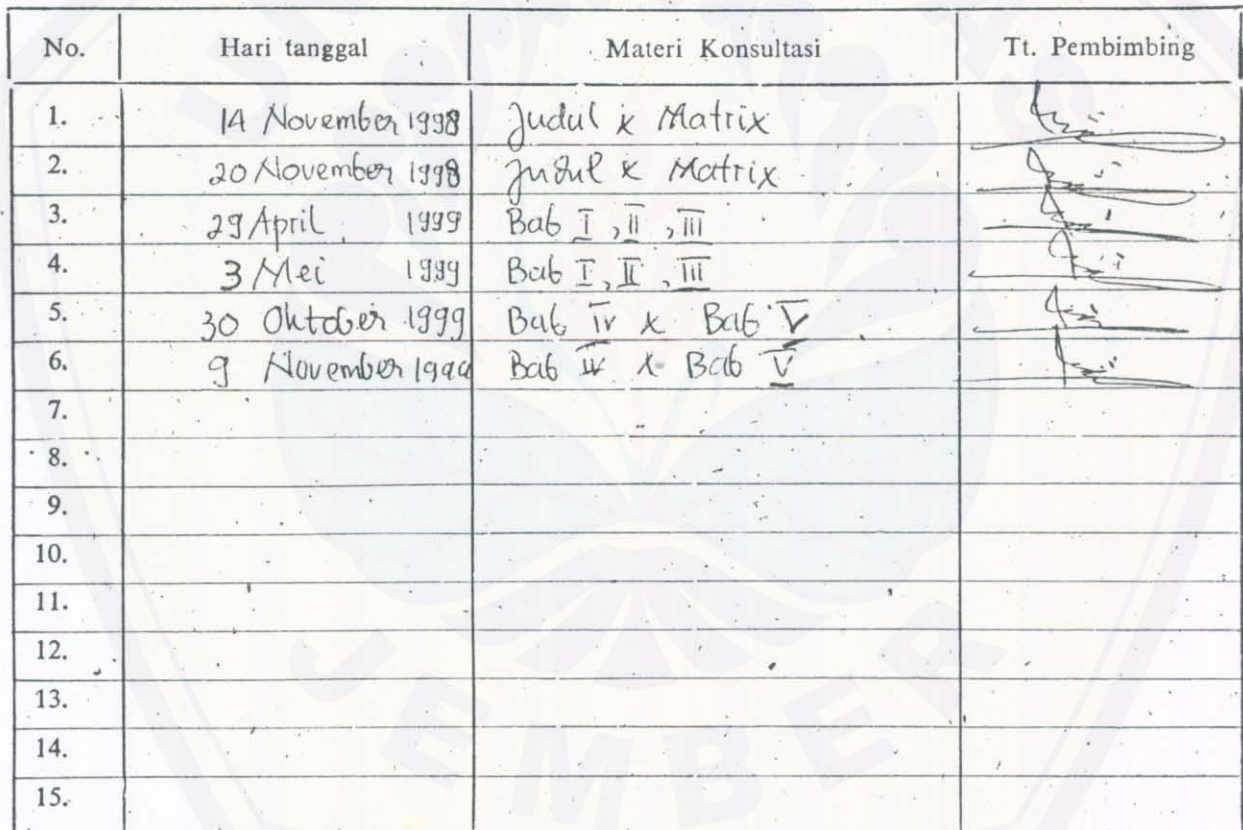 No. Hari tanggal Materi Konsultasi Tt. Pembimbing
1. 14 November 1998 Judul x Matrix
2. 20 November 1998 Judul x Matrix
3. 29 April 1999 Bab I, II, III
4. 3 Mei 1999 Bab I, II, III
5. 30 Oktober 1999 Bab IV x Bab V
6. 9 November 1999 Bab IV x Bab V
7.
8.
9.
10.
11.
12.
13.
14.
15.
JEMBER